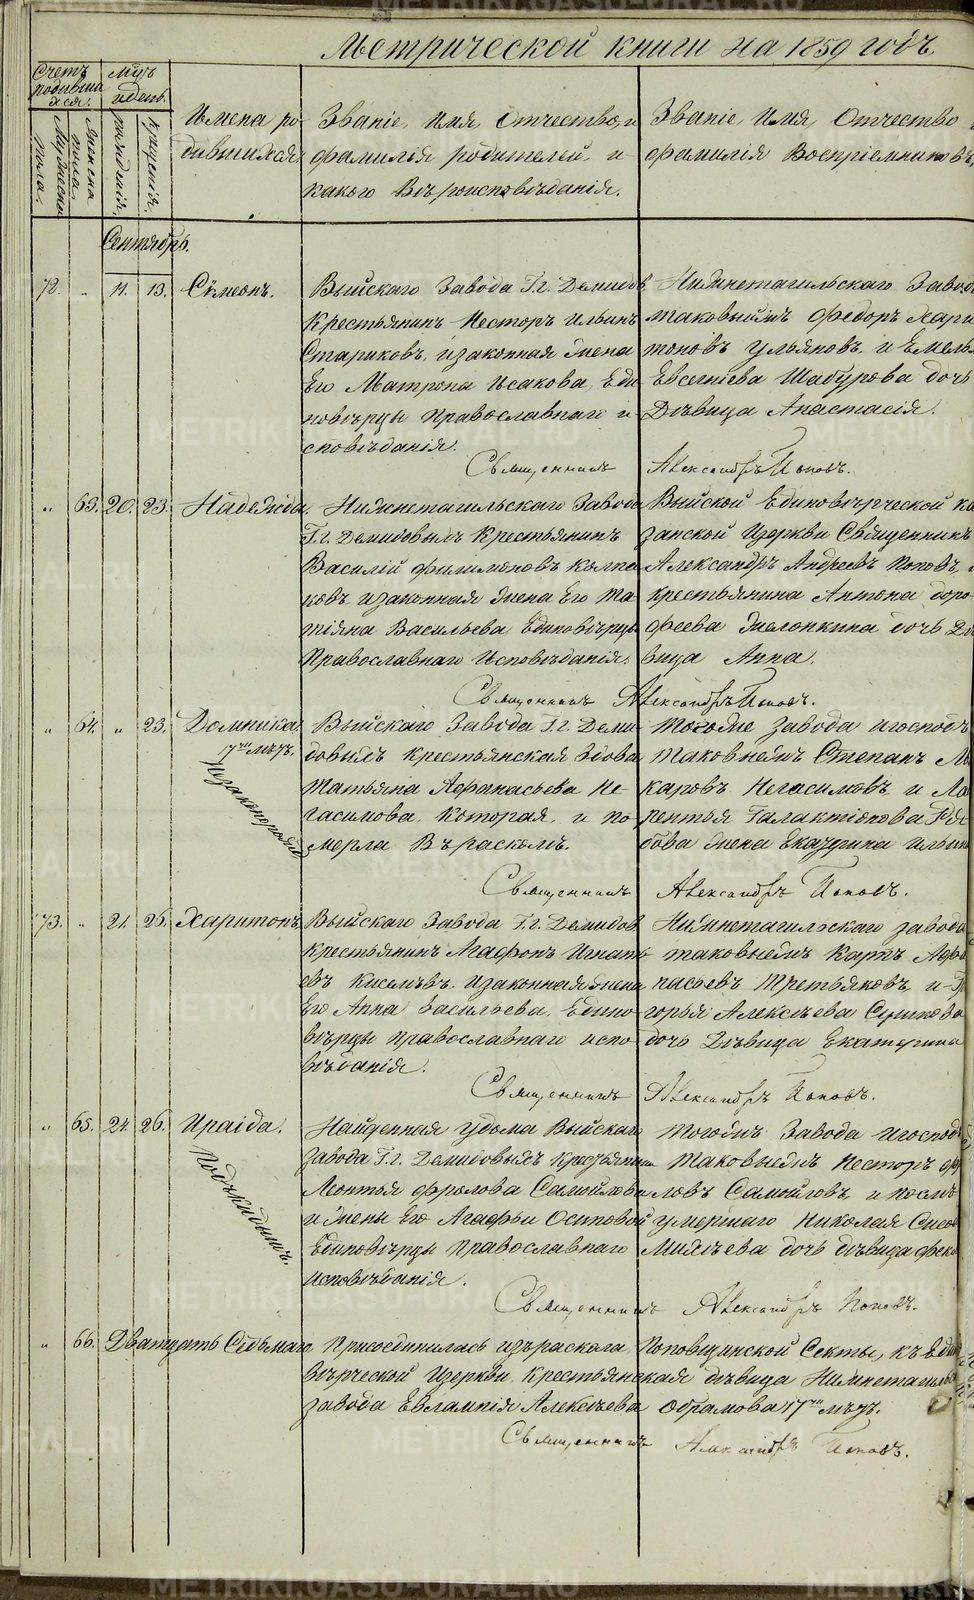 Метрической книги на 1859 годъ.
Счетъ родившихся.
Мужеска пола.
Женска пола.
Мѣсяцъ и день.
рожденія.
крещенія.
Имена родившихся
Званіе, Имя Отчество, и
фамилія родителей, и
какого Вѣроисповѣданія.
Званіе Имя Отчество
фамилія Воспріемниковъ,
Сентябрь.
72. „ 11. 13. Сѵмеонъ.
Выйскаго Завода Г.г. Демидов
Крестьянинъ Несторъ Ильинъ
Стариковъ, изаконная жена
Его Матрона Исакова, Еди
новѣрцы Православнаго и
сповѣданія.
Нижнетагильскаго Завод
таковыйжъ Федоръ Хари
тоновъ Ульяновъ, и Емель
Евсегнѣева Шабурова дочь
Дѣвица Анастасія.
Священникъ Александръ Поповъ.
„ 63. 20. 23. Надежда.
Нижнетагильскаго Завода
Г.г. Демидовыхъ Крестьянинъ
Василій Филимоновъ Колпа
ковъ, изаконная жена Его Та
тіяна Васильева Единовѣрцы
Православнаго Исповѣданія.
Выйской Единовѣрческой Ка
занской Церкви Священникъ
Александръ Андреевъ Поповъ,
крестьянина Антона Доро
феева Желонкина дочь Дѣ
вица Анна.
Священникъ Александръ Поповъ.
„ 64. „ 23. Домника
17ти лѣтъ.
Незаконорожд
Выйскаго Завода Г.г. Деми
довыхъ крестьянская Вдова
Татьяна Афанасьева Не
гасимова, Которая, и По
мерла Въ расколѣ.
Тогоже Завода игосподъ
Таковыйжъ Степанъ М
каровъ Негасимовъ, и Ла
рентья Галактіонова Ря
бова жена Екатерина Ильин
Священникъ Александръ Поповъ.
73. „ 21. 25. Харитонъ
Выйскаго Завода Г.г. Демидов
Крестьянинъ Агафонъ Игнать
евъ Киселевъ, изаконная жена
Его Анна Васильева, Едино
вѣрцы православнаго испо
вѣданія.
Нижнетагильскаго завода
таковыйжъ Карпъ Афа
насьевъ Третьяковъ, и
горья Алексѣева Сушкова
дочь Дѣвица Екатерина
Священникъ Александръ Поповъ.
„ 65. 24. 26. Ираіда.
Подъкидышъ.
Найденная удома Выйскаго
Завода Г.г. Демидовыхъ Крестьянина
Леонтья Фролова Самойлова
и жены Его Агафьи Осиповой
Единовѣрцы Православнаго
Исповѣданія.
Тогожъ Завода игоспод
Таковыйжъ Несторъ Ф
ловъ Самойловъ, и послѣ
умершаго Николая
дочь дѣвица Фек
Священникъ Александръ Поповъ.
„ 66. Дватцать Седьмаго Присоединилась изъраскола Поповщинской Секты, къ Един
вѣрческой Церкви, крестьянская дѣвица Нижнетагиль
завода Евлампія Алексѣева Абрамова 17ти лѣтъ.
Священникъ Александръ Поповъ.
METRIKI.GASO-URAL.RU